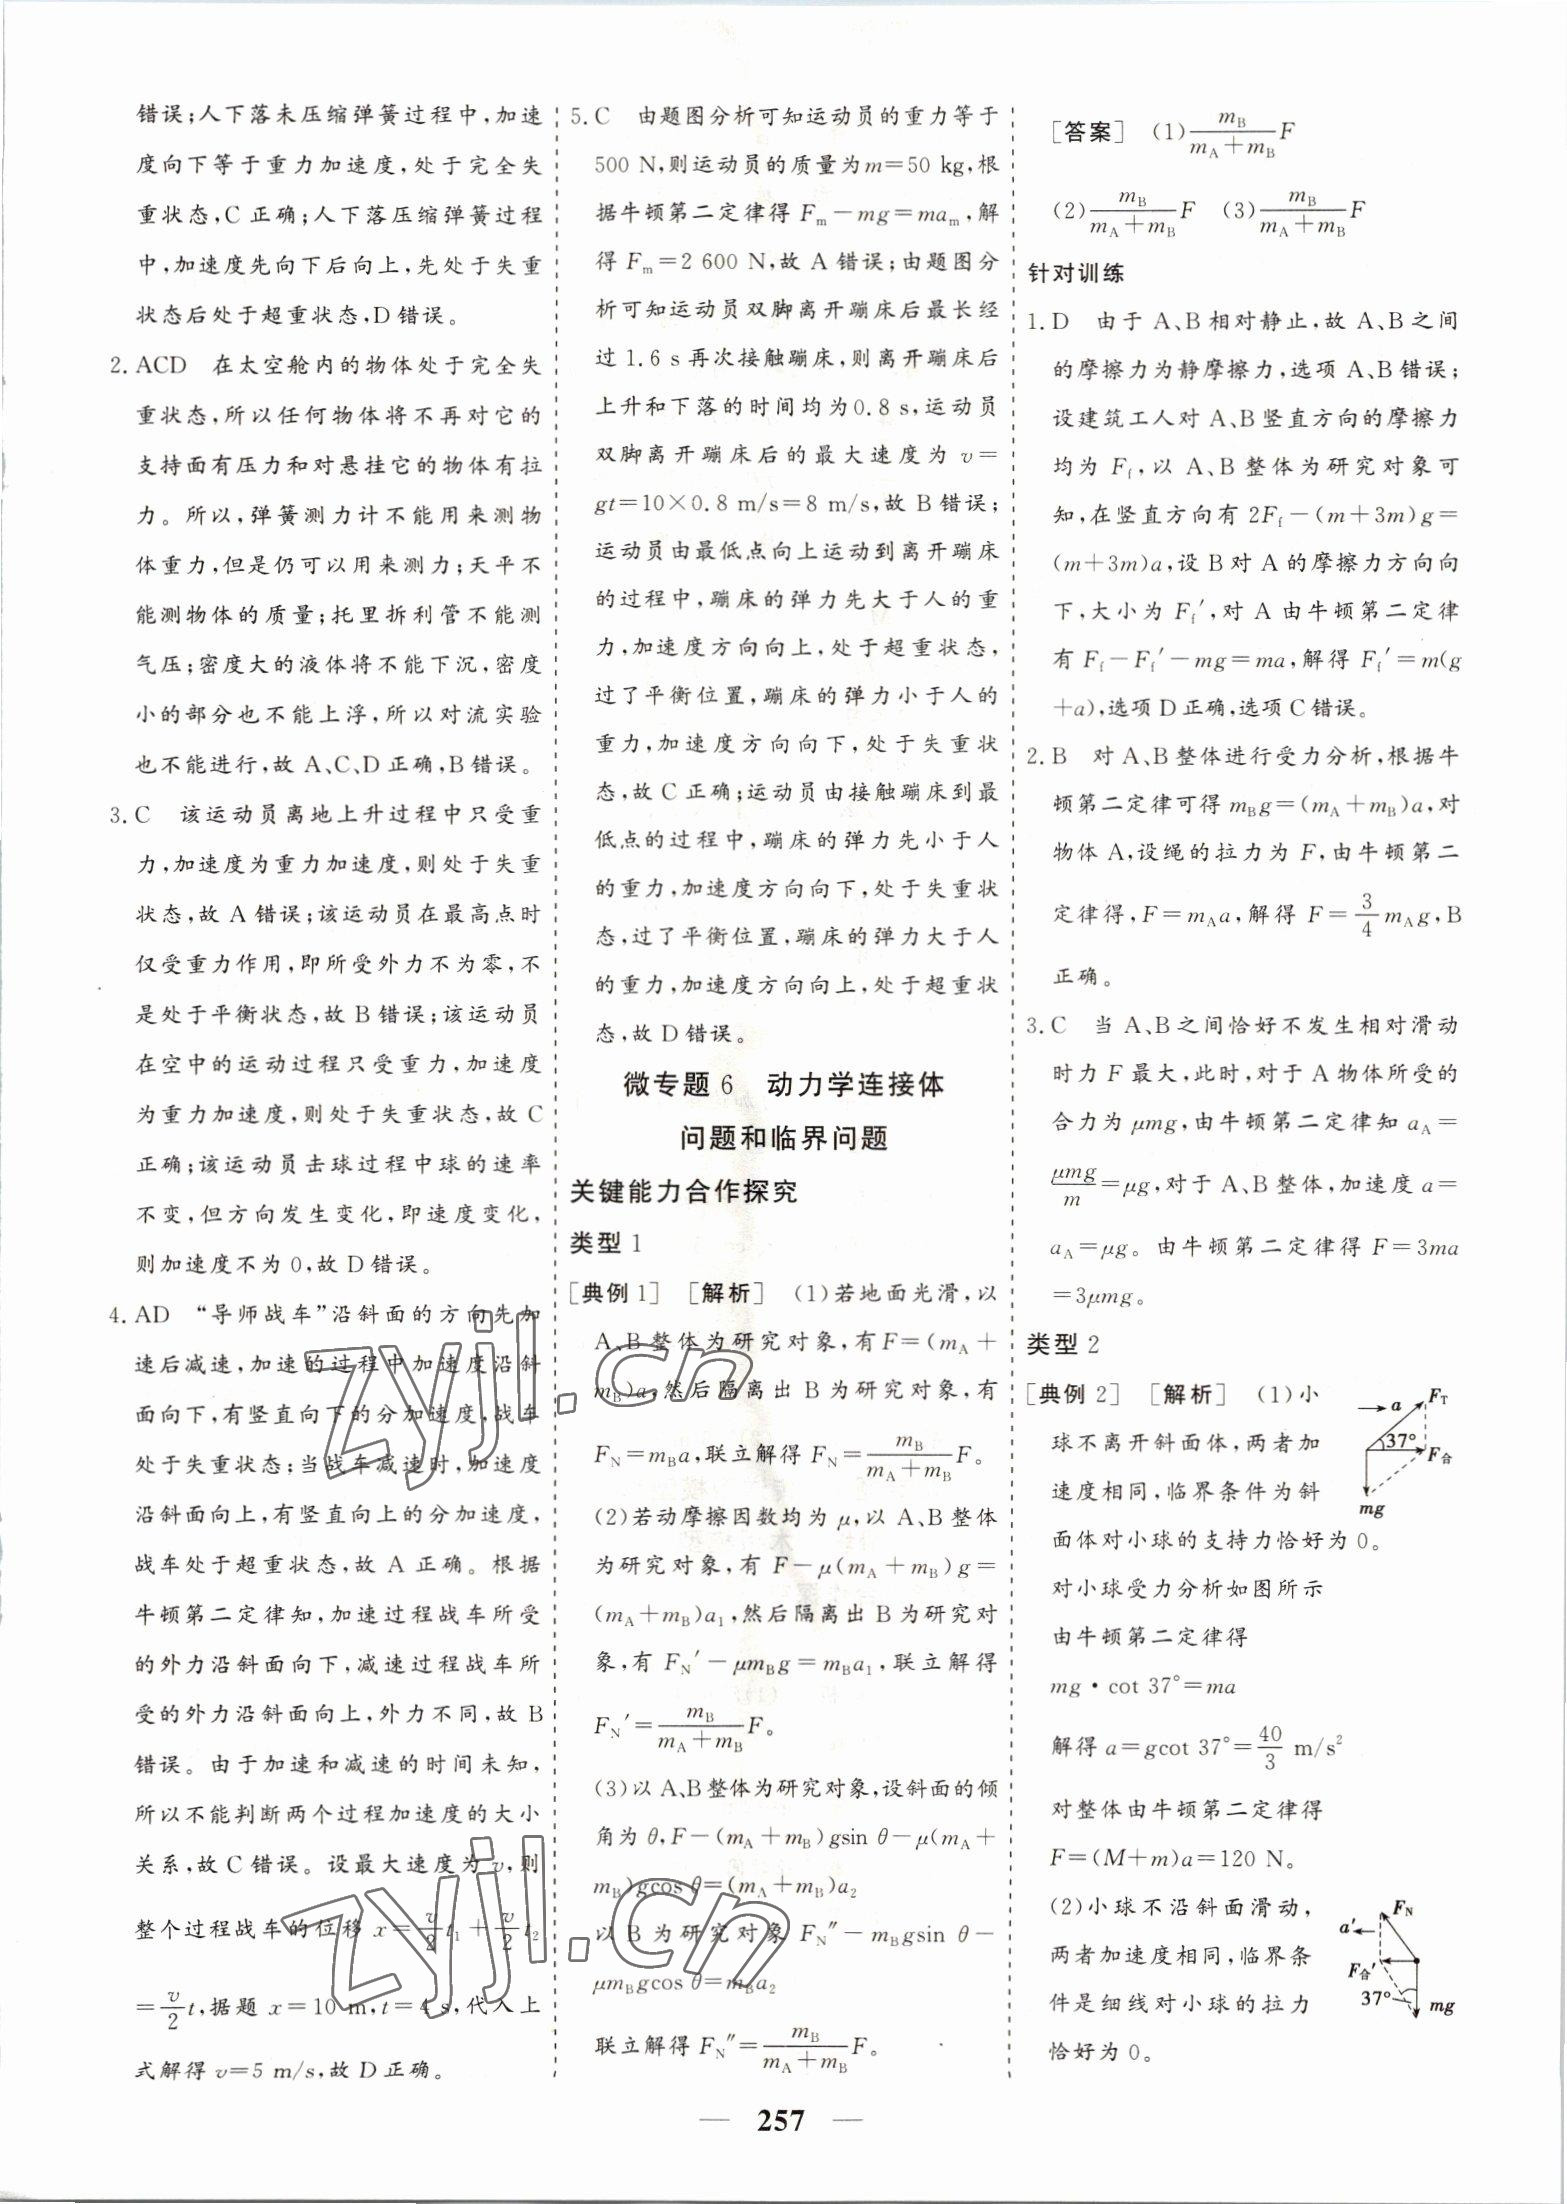 错误;人下落未压缩弹簧过程中,加速
度向下等于重力加速度,处于完全失
重状态,C正确;人下落压缩弹簧过程
中,加速度先向下后向上,先处于失重
状态后处于超重状态,D错误。
2. ACD 在太空舱内的物体处于完全失
重状态,所以任何物体将不再对它的
支持面有压力和对悬挂它的物体有拉
力。所以,弹簧测力计不能用来测物
体重力,但是仍可以用来测力;天平不
能测物体的质量;托里拆利管不能测
气压;密度大的液体将不能下沉,密度
小的部分也不能上浮,所以对流实验
也不能进行,故A、C、D正确,B错误。
3. C 该运动员离地上升过程中只受重
力,加速度为重力加速度,则处于失重
状态,故A错误;该运动员在最高点时
仅受重力作用,即所受外力不为零,不
是处于平衡状态,故B错误;该运动员
在空中的运动过程只受重力,加速度
为重力加速度,则处于失重状态,故C
正确;该运动员击球过程中球的速率
不变,但方向发生变化,即速度变化,
则加速度不为0,故D错误。
4. AD “导师战车”沿斜面的方向先加
速后减速,加速的过程中加速度沿斜
面向下,有竖直向下的分加速度,战车
处于失重状态;当战车减速时,加速度
沿斜面向上,有竖直向上的分加速度,
战车处于超重状态,故A正确。根据
牛顿第二定律知,加速过程战车所受
的外力沿斜面向下,减速过程战车所
受的外力沿斜面向上,外力不同,故B
错误。由于加速和减速的时间未知,
所以不能判断两个过程加速度的大小
关系,故C错误。设最大速度为v,则
整个过程战车的位移 x=v/2 t₁+v/2 t₂
=v/2 t,据题 x=10 m,t=4 s,代入上
式解得 v=5 m/s,故D正确。
5. C 由题图分析可知运动员的重力等于
500 N,则运动员的质量为m=50 kg,根
据牛顿第二定律得 Fₘ-mg=maₘ,解
得 Fₘ=2 600 N,故A错误;由题图分
析可知运动员双脚离开蹦床后最长经
过1.6 s再次接触蹦床,则离开蹦床后
上升和下落的时间均为0.8 s,运动员
双脚离开蹦床后的最大速度为 v=
gt=10×0.8 m/s=8 m/s,故B错误;
运动员由最低点向上运动到离开蹦床
的过程中,蹦床的弹力先大于人的重
力,加速度方向向上,处于超重状态,
过了平衡位置,蹦床的弹力小于人的
重力,加速度方向向下,处于失重状
态,故C正确;运动员由接触蹦床到最
低点的过程中,蹦床的弹力先小于人
的重力,加速度方向向下,处于失重状
态,过了平衡位置,蹦床的弹力大于人
的重力,加速度方向向上,处于超重状
态,故D错误。
微专题6 动力学连接体
问题和临界问题
关键能力合作探究
类型1
[典例1] [解析] (1)若地面光滑,以
A、B整体为研究对象,有F=(m_A+
m_B)a,然后隔离出B为研究对象,有
F_N=m_B a,联立解得 F_N=m_B/(m_A+m_B) F。
(2)若动摩擦因数均为μ,以A、B整体
为研究对象,有 F-μ(m_A+m_B)g=
(m_A+m_B)a₁,然后隔离出B为研究对
象,有 F_N′-μm_B g=m_B a₁,联立解得
F_N′=m_B/(m_A+m_B) F。
(3)以A、B整体为研究对象,设斜面的倾
角为θ,F-(m_A+m_B)gsin θ-μ(m_A+
m_B)gcos θ=(m_A+m_B)a₂
以B为研究对象 F_N″-m_B gsin θ-
μm_B gcos θ=m_B a₂
联立解得 F_N″=m_B/(m_A+m_B) F。
[答案] (1)m_B/(m_A+m_B) F
(2)m_B/(m_A+m_B) F (3)m_B/(m_A+m_B) F
针对训练
1. D 由于A、B相对静止,故A、B之间
的摩擦力为静摩擦力,选项A、B错误;
设建筑工人对A、B竖直方向的摩擦力
均为 F_f,以A、B整体为研究对象可
知,在竖直方向有 2F_f-(m+3m)g=
(m+3m)a,设B对A的摩擦力方向向
下,大小为 F_f′,对A由牛顿第二定律
有 F_f-F_f′-mg=ma,解得 F_f′=m(g
+a),选项D正确,选项C错误。
2. B 对A、B整体进行受力分析,根据牛
顿第二定律可得 m_B g=(m_A+m_B)a,对
物体A,设绳的拉力为F,由牛顿第二
定律得,F=m_A a,解得 F=3/4 m_A g,B
正确。
3. C 当A、B之间恰好不发生相对滑动
时力F最大,此时,对于A物体所受的
合力为μmg,由牛顿第二定律知 a_A=
μmg/m=μg,对于A、B整体,加速度a=
a_A=μg。由牛顿第二定律得F=3ma
=3μmg。
类型2
[典例2] [解析] (1)小
球不离开斜面体,两者加
速度相同,临界条件为斜
面体对小球的支持力恰好为0。
对小球受力分析如图所示
由牛顿第二定律得
mg·cot 37°=ma
解得 a=gcot 37°=40/3 m/s²
对整体由牛顿第二定律得
F=(M+m)a=120 N。
(2)小球不沿斜面滑动,
两者加速度相同,临界条
件是细线对小球的拉力
恰好为0。
a F_T
37°
F合
mg
F_N
a′
F合′
37° mg
257
zyjl.cn
zyjl.cn